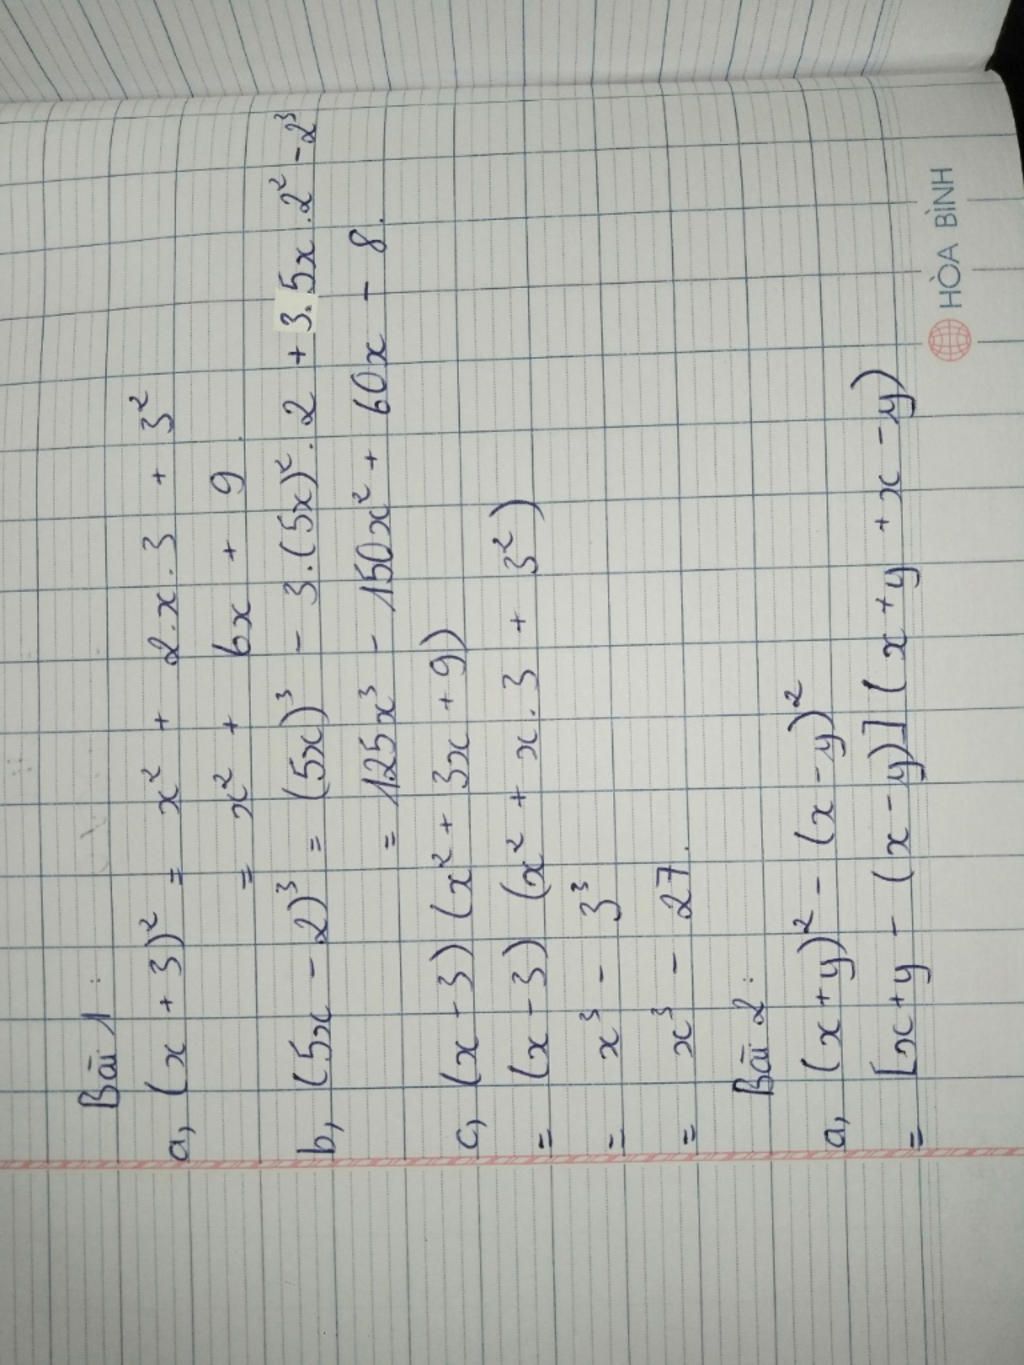 Bài 1:
a, (x + 3)² = x² + 2.x.3 + 3²
= x² + 6x + 9.
b, (5x - 2)³ = (5x)³ - 3.(5x)².2 + 3.5x.2² - 2³
= 125x³ - 150x² + 60x - 8.
c, (x - 3) (x² + 3x + 9)
= (x - 3) (x² + x.3 + 3²)
= x³ - 3³
= x³ - 27.
Bài 2:
a, (x + y)² - (x - y)²
= [x + y - (x - y)] (x + y + x - y)
HÒA BÌNH